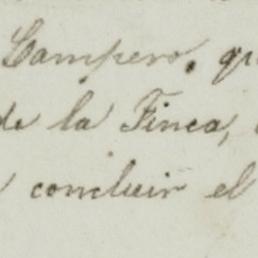 Campero, qu
de la Finca,
concluir el